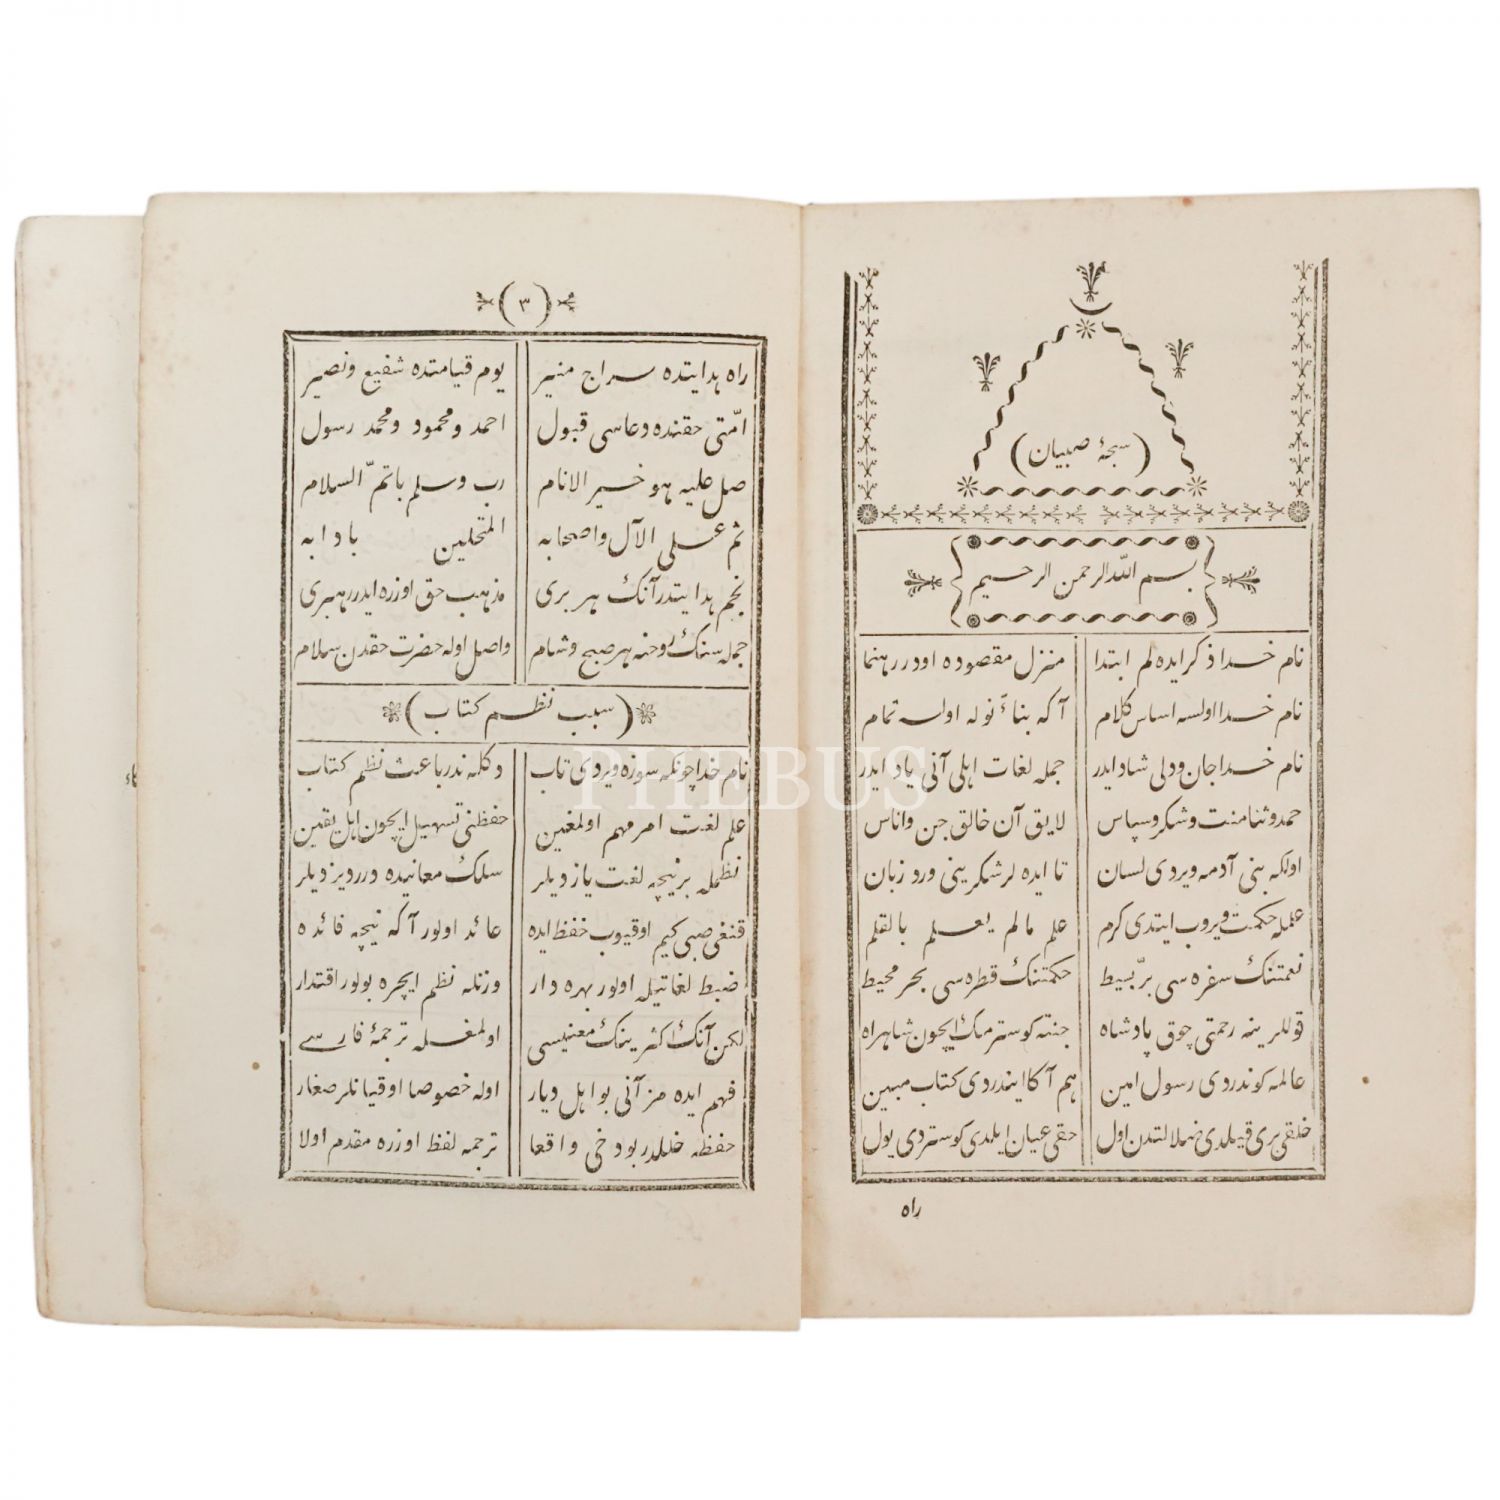 (سبحۀ صبیان)
بسم الله الرحمن الرحیم
نام خدا ذکر ایده لم ابتدا منزل مقصوده اودر رهنما
نام خدا اولسه اساس کلام آکه بناء نوله اولسه تمام
نام خدا جان ودلی شاد ایدر جمله لغات اهلی آنی یاد ایدر
حمد وثنا منت وشکر وسپاس لایق آن خالق جن واناس
اولکه بنی آدمه ویردی لسان تا ایده لر شکرینی ورد زبان
علمله حکمت ویروب ایتدی کرم علم مالم یعلم بالقلم
نعمتنک سفره سی بر بسیط حکمتنک قطره سی بحر محیط
قوللرینه رحمتی چوق پادشاه جنته کوسترمک ایچون شاهراه
عالمه کوندردی رسول امین هم آکا ایندردی کتاب مبین
خلقی بری قیلدی ضلالتدن اول حقی عیان ایلدی کوستردی یول
راه
(٣)
راه هدایتده سراج منیر یوم قیامتده شفیع ونصیر
امّتی حقنده دعاسی قبول احمد ومحمود ومحمد رسول
صل علیه هو خیر الانام رب وسلم باتمّ السلام
ثم علی الآل واصحابه المتحلین بادابه
نجم هدایتدر آنک هر بری مذهب حق اوزره ایدر رهبری
جمله سنک روحنه هر صبح وشام واصل اوله حضرت حقدن سلام
(سبب نظم کتاب)
نام خدا چونکه سوزه ویردی تاب وکله ندر باعث نظم کتاب
علم لغت امر مهم اولمغین حفظنی تسهیل ایچون اهل یقین
نظمله برنیچه لغت یازدیلر سلک معانیده درر دیزدیلر
قنغی صبی کیم اوقیوب حفظ ایده عائد اولور آکه نیچه فائده
ضبط لغاتیله اولور بهره دار وزنله نظم ایچره بولور اقتدار
لکن آنک اکثرینک معنیسی اولمغله ترجمۀ فارسی
فهم ایده مز آنی بو اهل دیار اوله خصوصا اوقیانلر صغار
حفظه خللدر بو دخی واقعا ترجمه لفظ اوزره مقدم اولا
PHEBUS